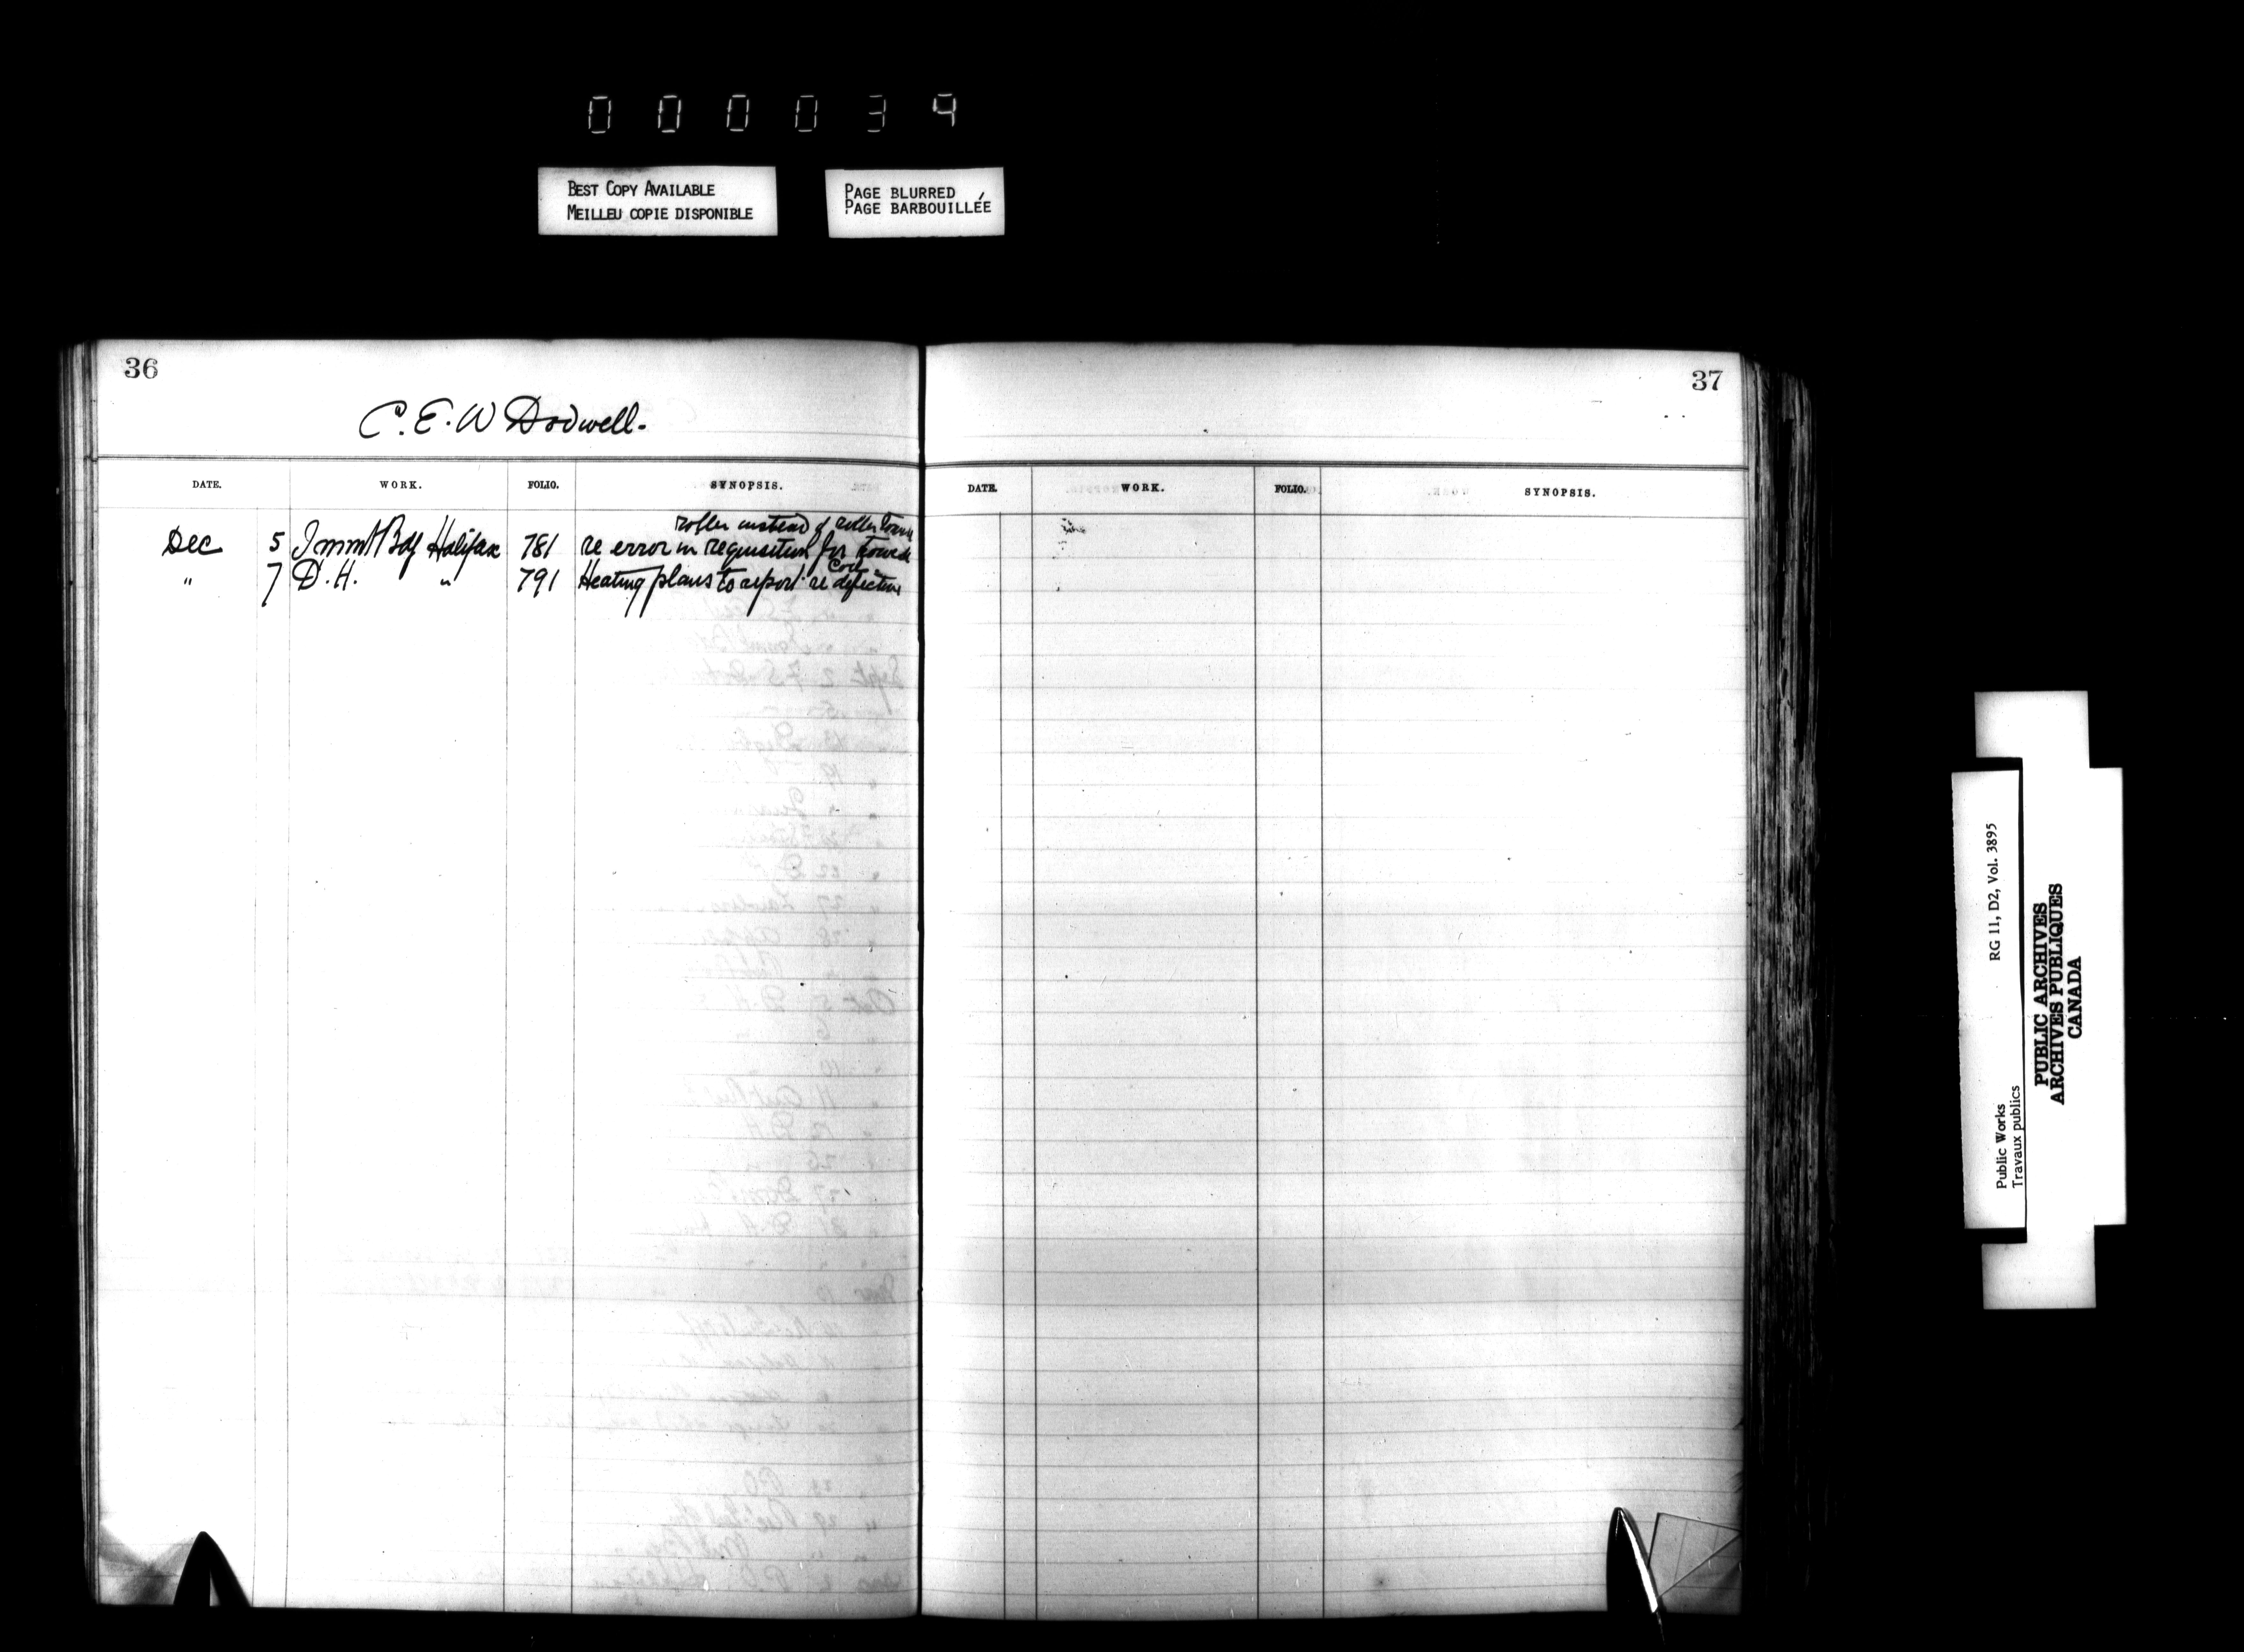 000034
BEST COPY AVAILABLE
MEILLEU COPIE DISPONIBLE
PAGE BLURRED
PAGE BARBOUILLÉE
36
C. E. W Dodwell.
DATE. WORK. FOLIO. SYNOPSIS.
roller instead of roller towels
Dec 5 Immt Bdg Halifax 781 re error in requisition for towels
" 7 D. H. " 791 Heating plans to report re defective
Coil
37
DATE. WORK. FOLIO. SYNOPSIS.
Public Works
Travaux publics
RG 11, D2, Vol. 3895
PUBLIC ARCHIVES
ARCHIVES PUBLIQUES
CANADA